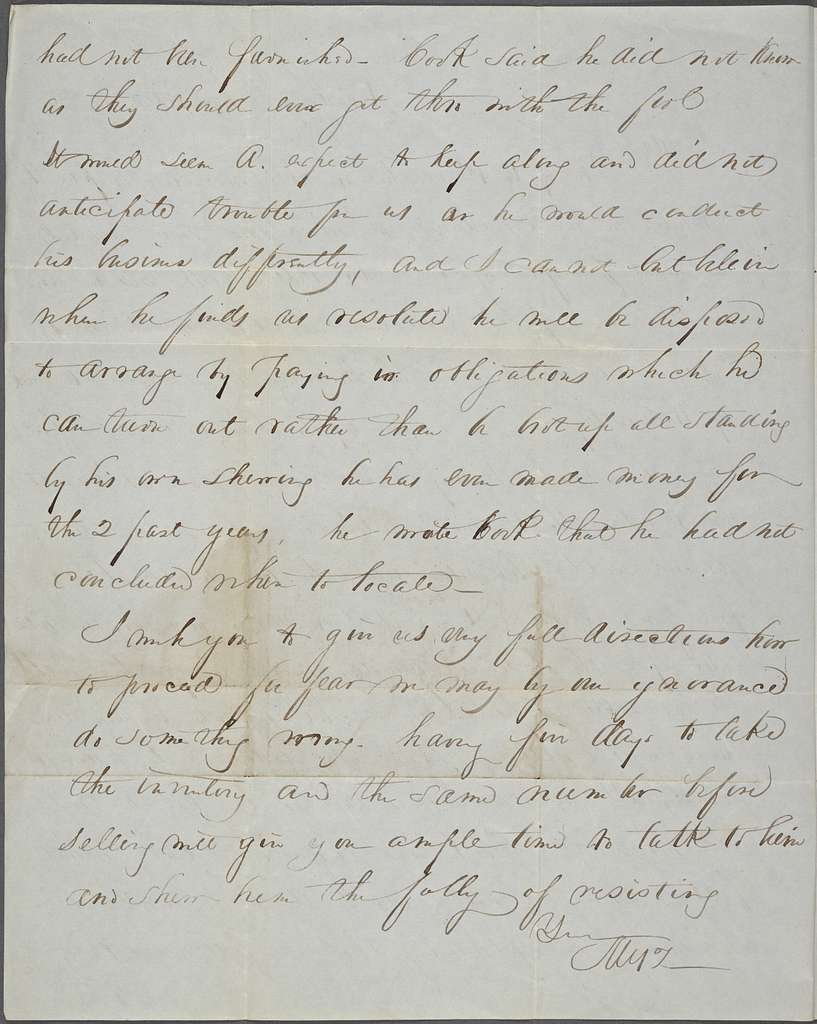 had not been furnished - Cook said he did not know
as they should ever get thro with the
It would seem A. expect to keep along and did not
anticipate trouble from us as he would conduct
his business differently, and I cannot but believe
when he finds us resolute he will be disposed
to arrange by paying in obligations which he
can turn out rather than be brot up all standing
by his own shewing he has even made money for
the 2 past years, he wrote Cook that he had not
concluded when to locate -
I wish you to give us very full directions how
to proceed for fear we may by our ignorance
do something wrong. having five days to take
the inventory and the same number before
selling will give you ample time to talk to him
and shew him the folly of resisting
Yrs